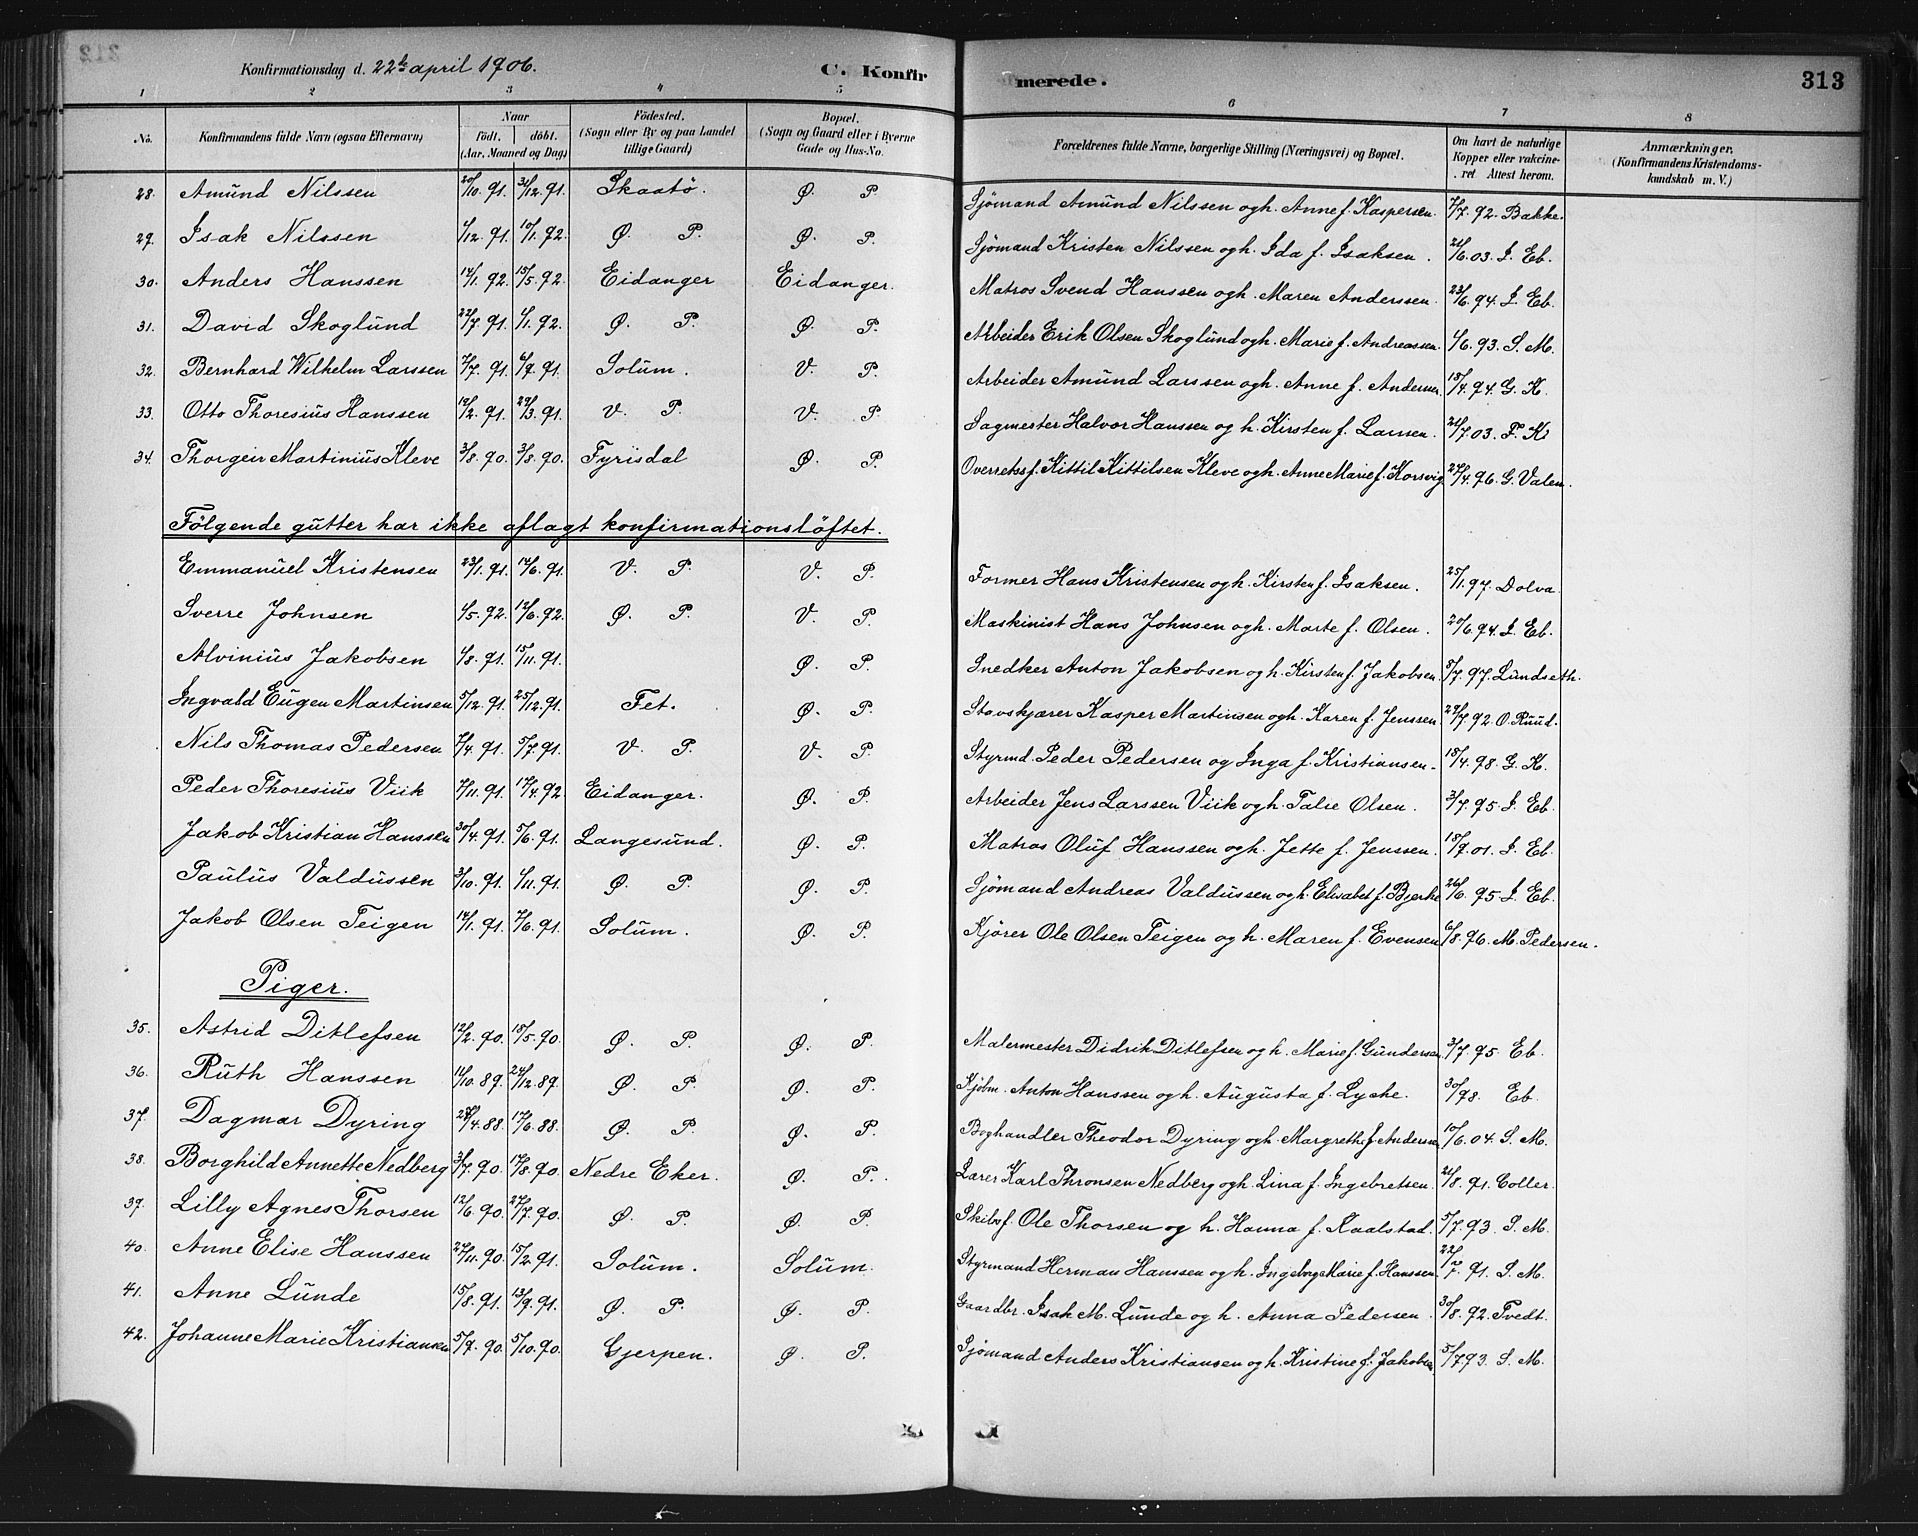 Konfirmationsdag d. 22de april 1906. C. Konfirmerede. 313
1 2 3 4 5 6 7 8
No. Konfirmandens fulde Navn (ogsaa Efternavn) Naar født. døbt. (Aar, Maaned og Dag) Födested. (Sogn eller By og paa Landet tillige Gaard) Bopæl. (Sogn og Gaard eller i Byerne Gade og Hus-No. Forældrenes fulde Navne, borgerlige Stilling (Næringsvei) og Bopæl. Om havt de naturlige Kopper eller vaccineret. Attest herom. Anmærkninger. (Konfirmandens Kristendomskundskab m. V.)
28. Amund Nilssen 20/10. 91. 31/12. 91. Skaatö. Ø. P. Sjömand Amund Nilssen og h. Anne f. Kaspersen. 7/7. 92. Bakke.
29. Isak Nilssen 1/12. 91. 10/1. 92. Ø. P. Ø. P. Sjömand Kristen Nilssen og h. Ida f. Isaksen. 21/6. 03. J. Eb.
30. Anders Hanssen 14/1. 92. 15/5. 92. Eidanger Eidanger. Matros Svend Hanssen og h. Maren Anderssen. 23/6. 94. J. Eb.
31. David Skoglund 22/7. 91. 1/1. 92. Ø. P. Ø. P. Arbeider Erik Olsen Skoglund og h. Marie f. Andreassen. 1/6. 93. S. M.
32. Bernhard Wilhelm Larssen 7/7. 91. 6/9. 91. Solum. V. P. Arbeider Amund Larssen og h. Anne f. Andersen 18/4. 94. G. K.
33. Otto Thoresius Hanssen 12/2. 91. 29/3. 91. V. P. V. P. Sagmester Halvor Hanssen og h. Kirsten f. Larsen. 21/7. 03. F. K.
34. Thorgeir Martinius Kleve 3/8. 90. 3/8. 90. Fyrisdal Ø. P. Overretssf. Kittil Kittilsen Kleve og h. Anne Marie f. Korsvig 27/4. 96. G. Valen.
Fölgende gutter har ikke aflagt konfirmationslöftet.
Emmanuel Kristensen 23/1. 91. 14/6. 91. V. P. V. P. Former Hans Kristensen og h. Kirsten f. Isaksen. 25/1. 97. Dolva.
Sverre Johnsen 1/5. 92. 12/6. 92. Ø. P. V. P. Maskinist Hans Johnsen og h. Marte f. Olsen. 20/6. 94. J. Eb.
Alvinius Jakobsen 1/8. 91. 15/11. 91. Ø. P. Snedker Anton Jakobsen og h. Kirsten f. Jakobsen. 8/7. 97. Lundseth.
Ingvald Eugen Martinsen 5/12. 91. 25/12. 91. Fet. Ø. P. Stavskjærer Kasper Martinsen og h. Karen f. Jenssen. 29/7. 92. O. Ruud.
Nils Thomas Pedersen 7/4. 91. 5/7. 91. V. P. V. P. Styrmd. Peder Pedersen og Inga f. Kristiansen. 18/4. 98. G. K.
Peder Thoresius Viik 7/11. 91. 17/4. 92 Eidanger. Ø. P. Arbeider Jens Larssen Viik og h. Talie Olsen. 3/7. 95. J. Eb.
Jakob Kristian Hanssen 30/4. 91. 5/6. 91. Langesund. Ø. P. Matros Oluf Hanssen og h. Jette f. Jenssen. 18/9. 01. J. Eb.
Paulus Valdussen 3/10. 91. 1/11. 91. Ø. P. Ø. P. Sjömand Andreas Valdussen og h. Elisabet f. Bjerke 26/6. 95. J. Eb.
Jakob Olsen Teigen 14/1. 91. 7/6. 91. Solum. Ø. P. Kjörer Ole Olsen Teigen og h. Maren f. Evensen 6/8. 96. M. Pedersen.
Piger.
35. Astrid Ditlefsen 12/2. 90. 18/5. 90. Ø. P. Ø. P. Malermester Didrik Ditlefsen og h. Marie f. Gundersen. 3/7. 95. Eb.
36. Ruth Hanssen 11/10. 89. 24/12. 89. Ø. P. Ø. P. Kjöbm. Anton Hanssen og h. Augusta f. Lyche. 30/98. Eb.
37. Dagmar Dyring 28/4. 88. 17/6. 88. Ø. P. Ø. P. Boghandler Theodor Dyring og h. Margrethe f. Andersen 10/6. 04. S. M.
38. Borghild Annette Nedberg 31/7. 90. 17/8. 90. Nedre Eker. Ø. P. Lærer Karl Thronsen Nedberg og h. Lina f. Ingebretsen. 21/8. 91. Coller.
39. Lilly Agnes Thorsen 12/6. 90. 27/7. 90. Ø. P. Ø. P. Skibsf. Ole Thorsen og h. Hanna f. Kaalstad. 5/7. 93. S. M.
40. Anne Elise Hanssen 27/11. 90. 15/2. 91. Solum. Solum. Styrmand Herman Hanssen og h. Ingeborg Marie f. Hanssen. 22/7. 91. S. M.
41. Anne Lunde 15/8. 91. 13/9. 91. Ø. P. Ø. P. Gaardbr. Isak M. Lunde og h. Anna Pedersen. 30/8. 92. Tvedt.
42. Johanne Marie Kristiansen 5/9. 90. 5/10. 90. Gjerpen. Ø. P. Sjömand Anders Kristiansen og h. Kristine f. Jakobsen 5/7 93. S. M.